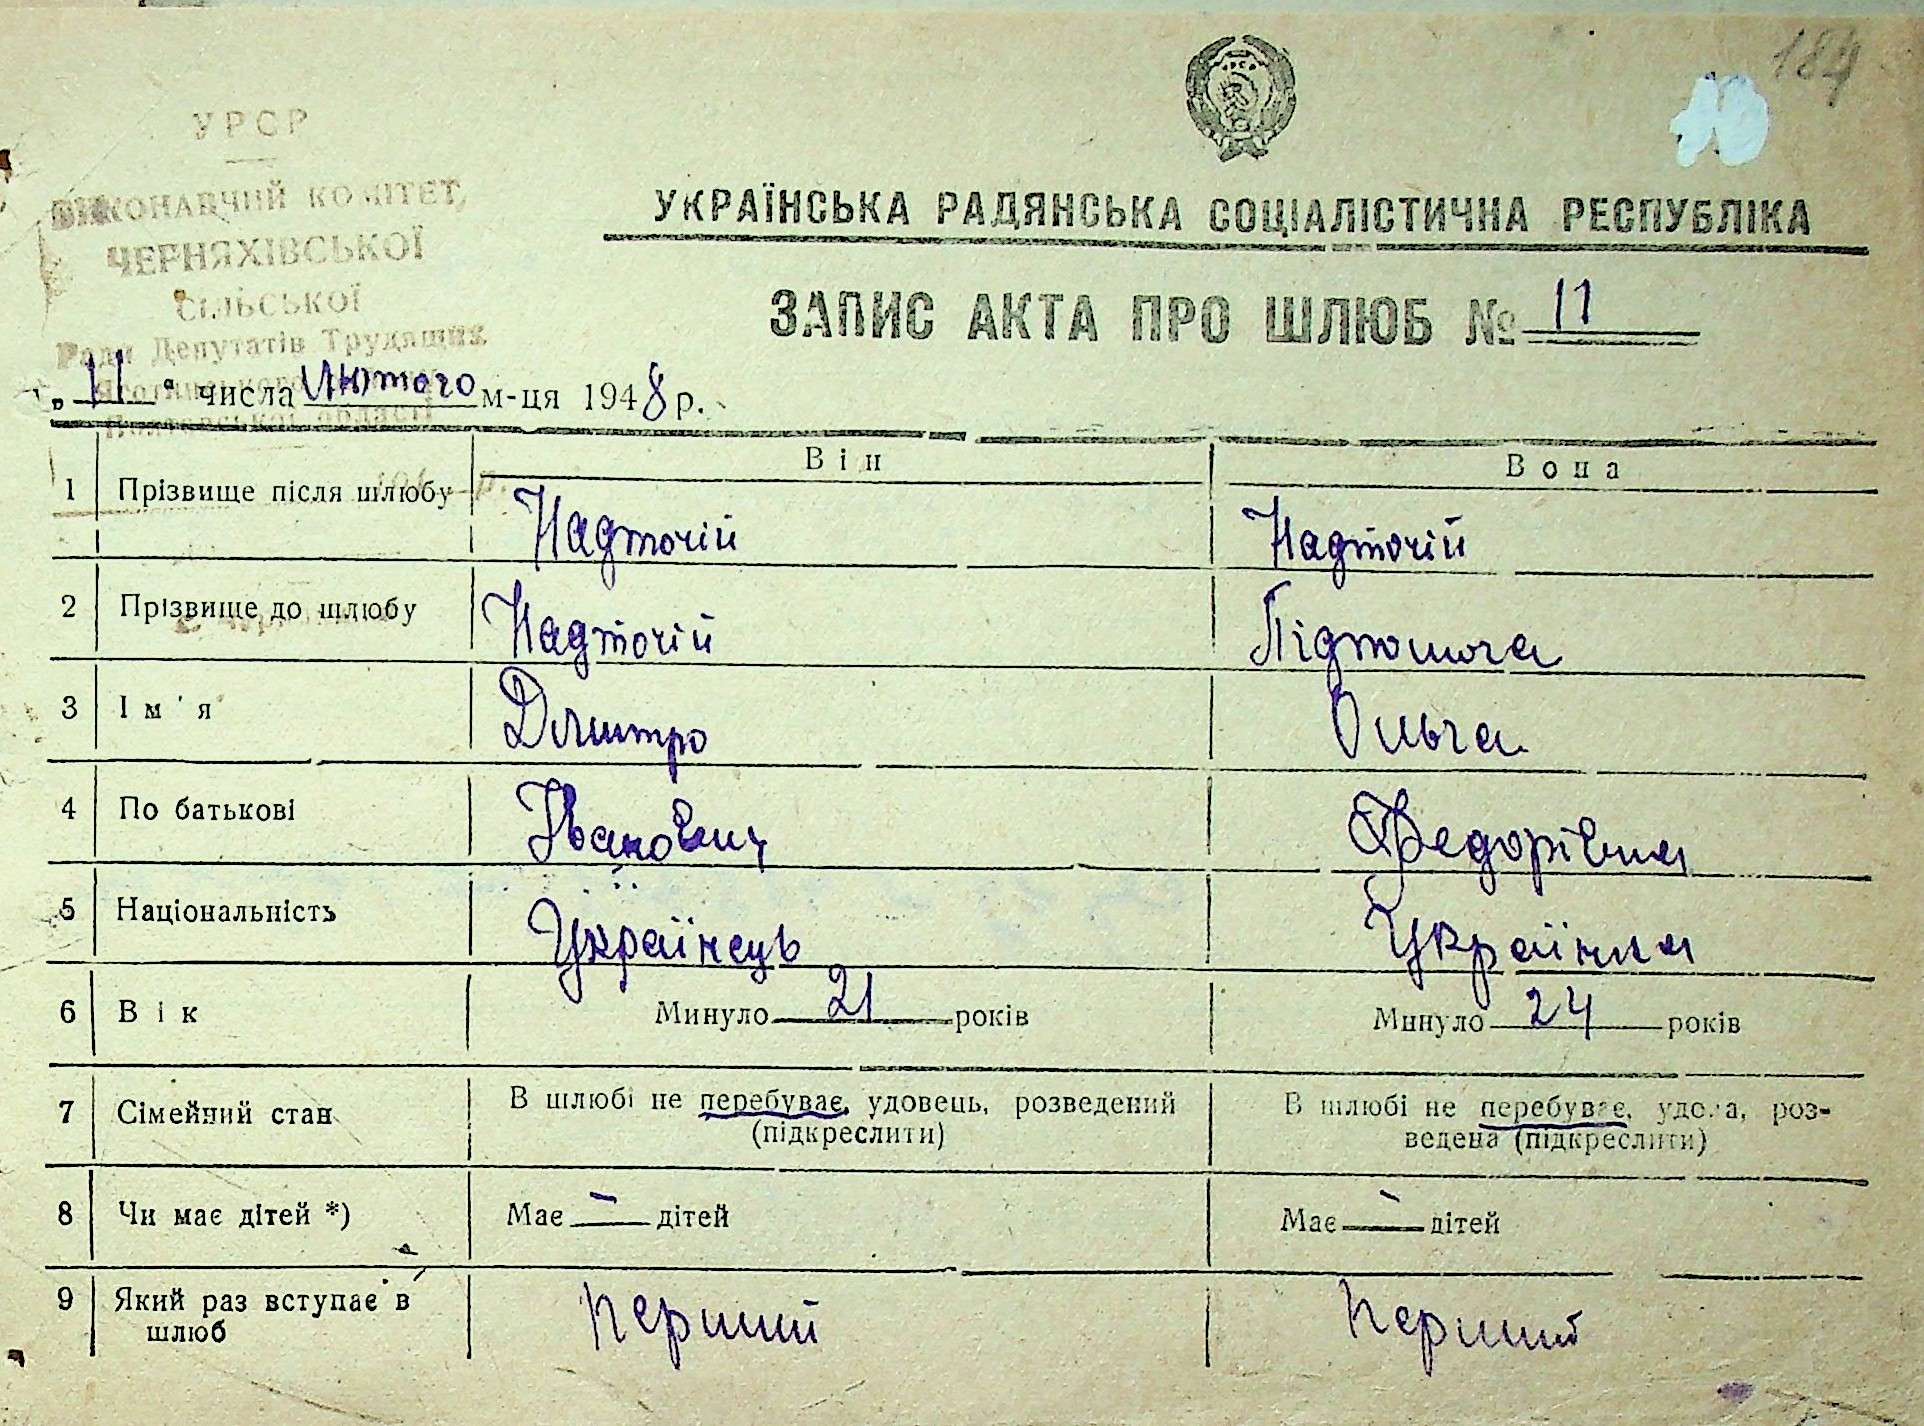 184
УРСР
УРСР
ВИКОНАВЧИЙ КОМІТЕТ,
ЧЕРНЯХІВСЬКОЇ
СІЛЬСЬКОЇ
Ради Депутатів Трудящих
УКРАЇНСЬКА РАДЯНСЬКА СОЦІАЛІСТИЧНА РЕСПУБЛІКА
ЗАПИС АКТА ПРО ШЛЮБ № 11
„11“ числа Лютого м-ця 1948 р.
Він Вона
1 Прізвище після шлюбу Надточій Надточій
2 Прізвище до шлюбу Надточій Підтомога
3 Ім'я Дмитро Ольга
4 По батькові Іванович Федорівна
5 Національність Українець Українка
6 Вік Минуло 21 років Минуло 24 років
7 Сімейний стан В шлюбі не перебуває, удовець, розведений В шлюбі не перебуває, удова, роз-
(підкреслити) ведена (підкреслити)
8 Чи має дітей *) Має — дітей Має — дітей
9 Який раз вступає в Перший Перший
шлюб